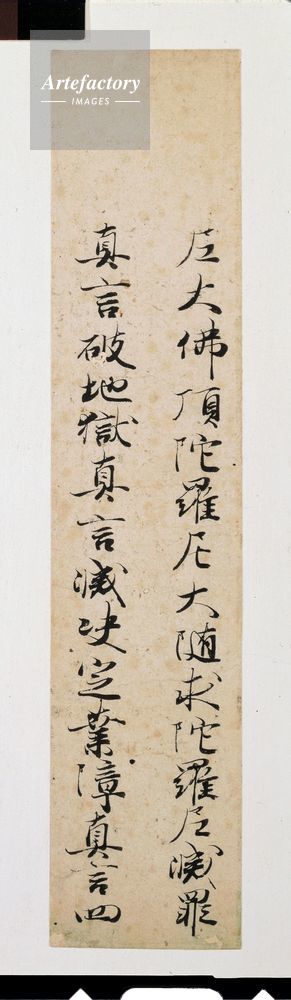 Artefactory
IMAGES
尼大佛頂陀羅尼大随求陀羅尼滅罪
真言破地獄真言滅决定業障真言四